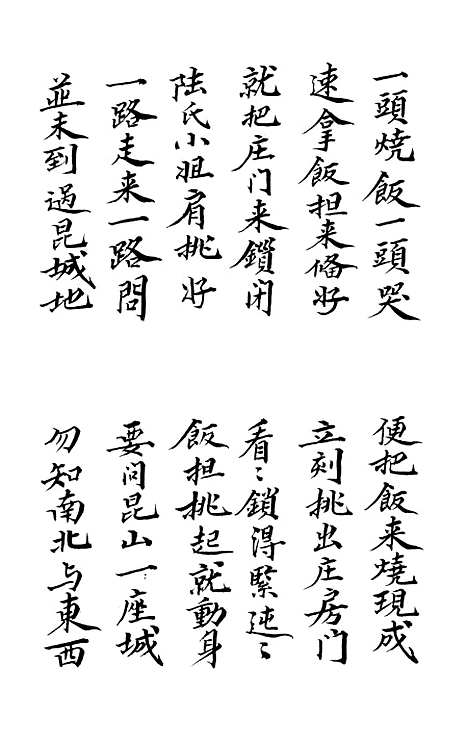 一頭燒飯一頭哭
便把飯来燒現成
速拿飯担来俻好
立刻挑出庄房门
就把庄门来鎖闭
看〻鎖得緊迍〻
陆氏小姐肩挑好
飯担挑起就動身
一路走来一路問
要问昆山一座城
並未到過昆城地
勿知南北与東西